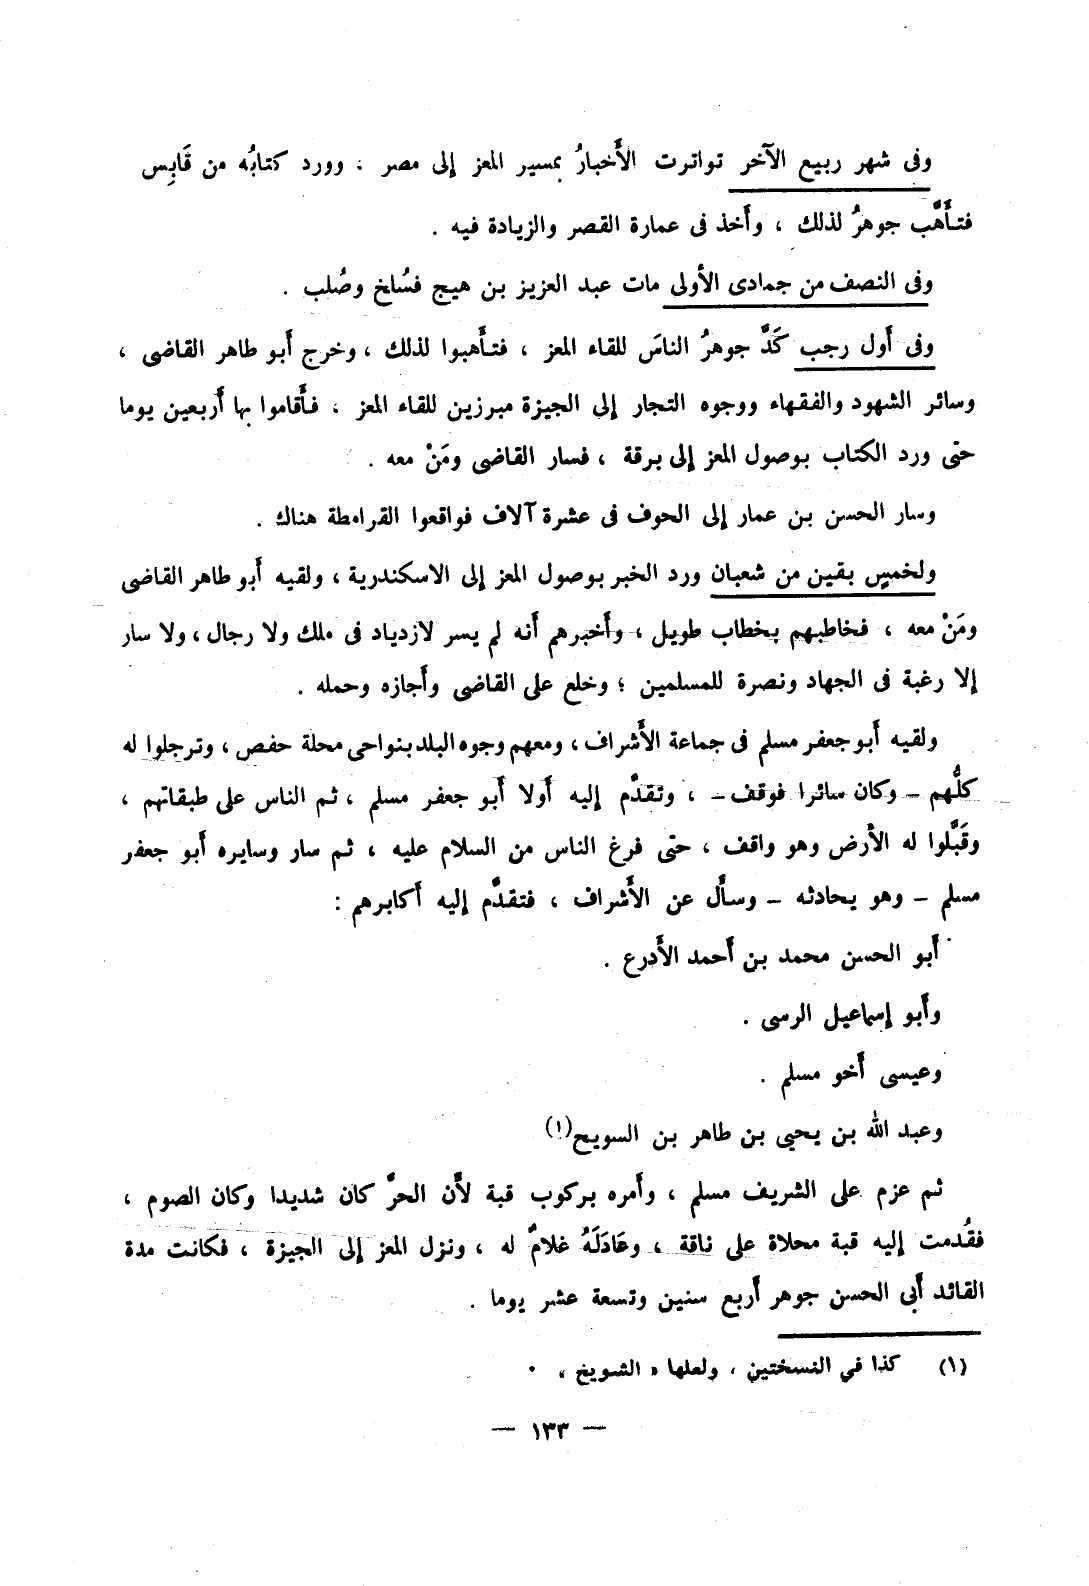 وفى شهر ربيع الآخر تواترت الأَخبارُ بمسير المعز إلى مصر ، وورد كتابُه من قَابِس
فتأَهَّب جوهرُ لذلك ، وأَخذ فى عمارة القصر والزيادة فيه .
وفى النصف من جمادى الأولى مات عبد العزيز بن هيج فسُلخ وصُلب .
وفى أول رجب كَدَّ جوهرُ الناسَ للقاء المعز ، فتأَهبوا لذلك ، وخرج أَبو طاهر القاضى ،
وسائر الشهود والفقهاء ووجوه التجار إلى الجيزة مبرزين للقاء المعز ، فأَقاموا بها أَربعين يوما
حتى ورد الكتاب بوصول المعز إلى برقة ، فسار القاضى ومَنْ معه .
وسار الحسن بن عمار إلى الحوف فى عشرة آلاف فواقعوا القرامطة هناك .
ولخمسٍ بقين من شعبان ورد الخبر بوصول المعز إلى الاسكندرية ، ولقيه أَبو طاهر القاضى
ومَنْ معه ، فخاطبهم بخطاب طويل ، وأَخبرهم أَنه لم يسر لازدياد فى ملك ولا رجال ، ولا سار
إلا رغبة فى الجهاد ونصرة للمسلمين ؛ وخلع على القاضى وأَجازه وحمله .
ولقيه أَبو جعفر مسلم فى جماعة الأَشراف ، ومعهم وجوه البلد بنواحى محلة حفص ، وترجلوا له
كلُّهم – وكان سائرا فوقف – ، وتقدَّم إليه أَولا أَبو جعفر مسلم ، ثم الناس على طبقاتهم ،
وقَبَّلوا له الأَرض وهو واقف ، حتى فرغ الناس من السلام عليه ، ثم سار وسايره أَبو جعفر
مسلم – وهو يحادثه – وسأَل عن الأَشراف ، فتقدَّم إليه أَكابرهم :
أَبو الحسن محمد بن أَحمد الأَدرع .
وأَبو إسماعيل الرسى .
وعيسى أَخو مسلم .
وعبد الله بن يحيى بن طاهر بن السويح(١)
ثم عزم على الشريف مسلم ، وأَمره بركوب قبة لأَن الحرَّ كان شديدا وكان الصوم ،
فقُدمت إليه قبة محلاة على ناقة ، وعَادَلَهُ غلامٌ له ، ونزل المعز إلى الجيزة ، فكانت مدة
القائد أَبى الحسن جوهر أَربع سنين وتسعة عشر يوما .
(١) كذا في النسختين ، ولعلها « الشويخ » .
— ١٣٣ —